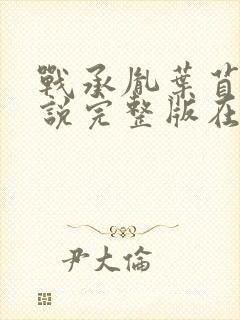 戰承胤葉苜
說完整版在
尹大倫